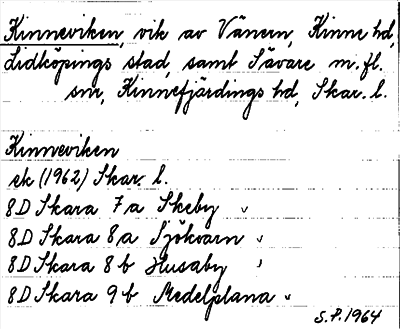 Kinneviken, vik av Vänern, Kinne hd,
Lidköpings stad, samt Sävare m.fl.
snr, Kinnefjärdings hd, Skar. l.
Kinneviken
ek (1962) Skar. l.
8D Skara 7a Skeby
8D Skara 8a Sjökvarn
8D Skara 8b Husaby
8D Skara 9b Medelplana
S.P. 1964